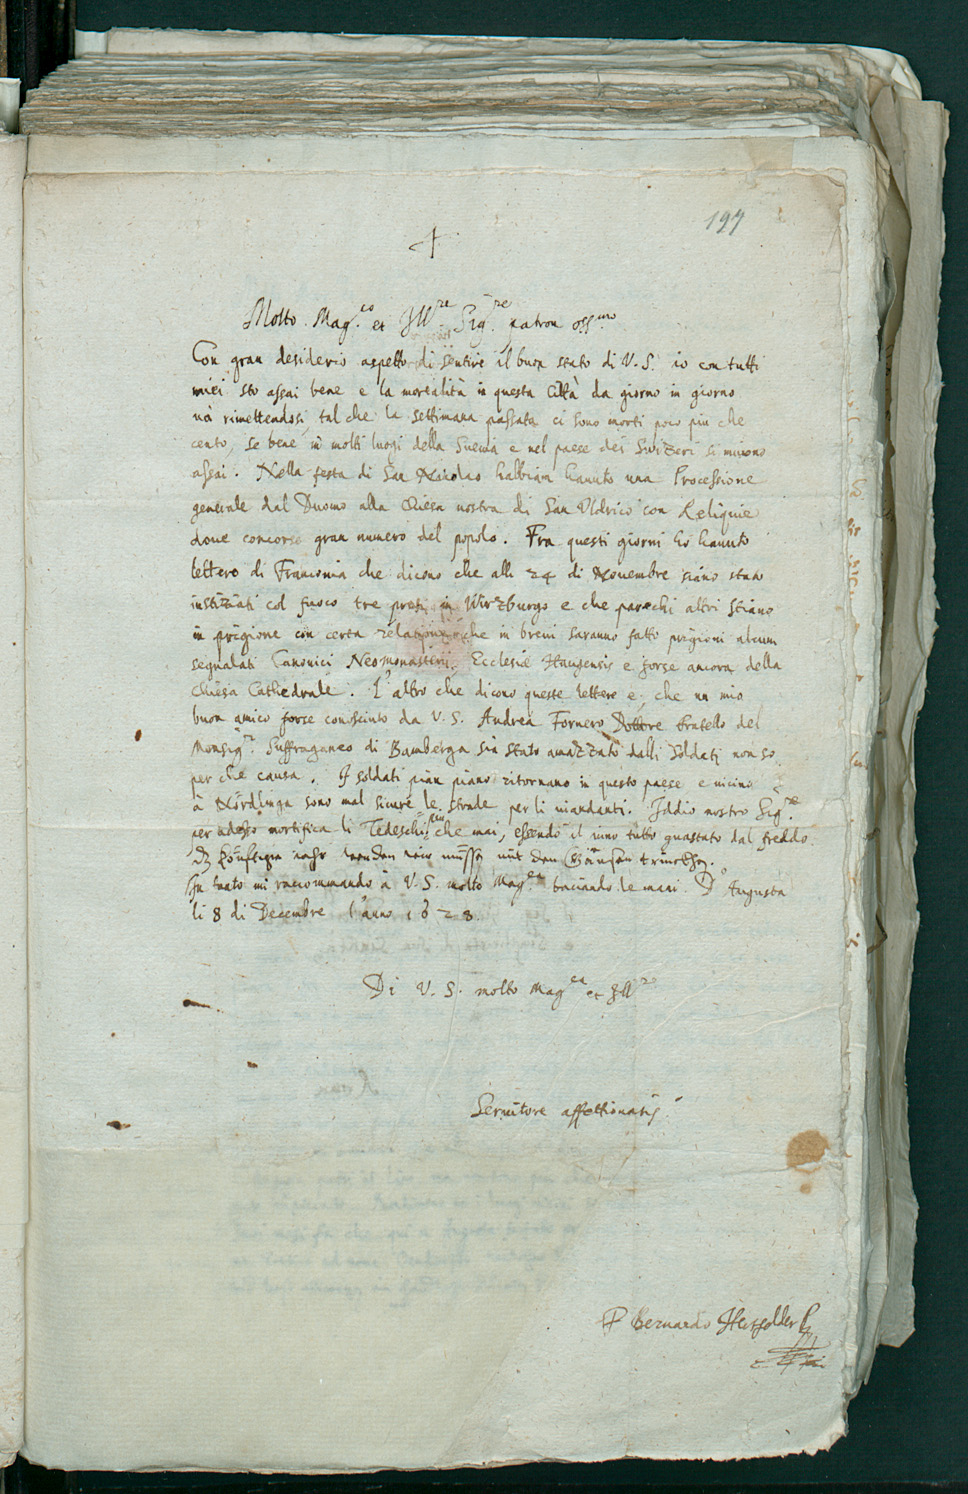 197
Molto Mag.co et Ill.re Sig.re patron oss.mo
Con gran desiderio aspetto di sentire il buon stato di V. S. io con tutti
miei sto assai bene e la mortalità in questa Città da giorno in giorno
uà rimettendosi, tal che la settimana passata ci sono morti poco piu che
cento, se bene in molti luogi della Sueuia e nel paese dei Swizeri si muiono
assai. Nella festa di San Nicolao habbiam hauuto una Processione
generale dal Duomo alla Chiesa nostra di San Uldrico con Reliquie
doue concorse gran numero del popolo. Fra questi giorni ho hauuto
lettere di Franconia che dicono che alli 24 di Nouembre siano stati
institiati col fuoco tre preti in Wirzburgo e che parochi altri stiano
in prigione con certa relatione che in breui saranno fatto prigioni alcuni
segnalati Canonici Neomonasterii, Ecclesiæ Haugensis e forse ancora della
Chiesa Cathedrale. L'altro che dicono queste lettere e, che un mio
buon amico forse conosciuto da V. S. Andrea Fornero Dottore fratello del
Monsig.r Suffraganeo di Bamberga sia stato amazzato dalli soldati non so
per che causa. I soldati pian piano ritornano in questo paese e uicino
à Nördlinga sono mal sicure le strade per li uiandanti. Iddio nostro Sig.re
per adesso mortifica li Tedeschi piu che mai, essendo il uino tutto guastato dal freddo
dz künftigs iahr werden wir müssen mit den Gänsen trinckhen.
In tanto mi raccommando à V. S. molto Mag.ca baciando le mani. D'Augusta
li 8 di Decembre l'anno 1628.
Di V. S. molto Mag.ca et Ill.re
Seruitore affettionatis.
P Bernardo Hertfelder